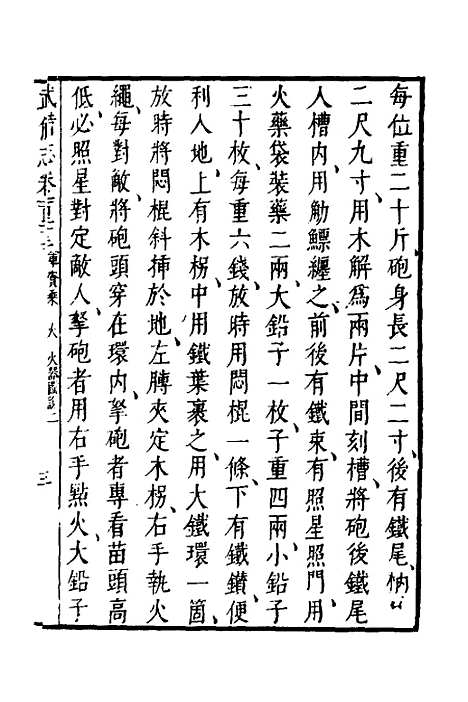 每位重二十斤砲身長二尺二寸、後有鐵尾、柄長
二尺九寸、用木解爲兩片、中間刻槽、將砲後鐵尾
入槽內、用觔鰾纏之、前後有鐵束、有照星照門、用
火藥袋裝藥二兩、大鉛子一枚、子重四兩、小鉛子
三十枚、每重六錢、放時用悶棍一條、下有鐵鑽、便
利入地、上有木柺、中用鐵葉裹之、用大鐵環一箇、
放時將悶棍斜揷於地、左膊夾定木柺、右手執火
繩、每對敵、將砲頭穿在環內、拏砲者專看苗頭高
低、必照星對定敵人、拏砲者用右手點火、大鉛子
武備志卷 軍資乘 火 火器圖說二 三